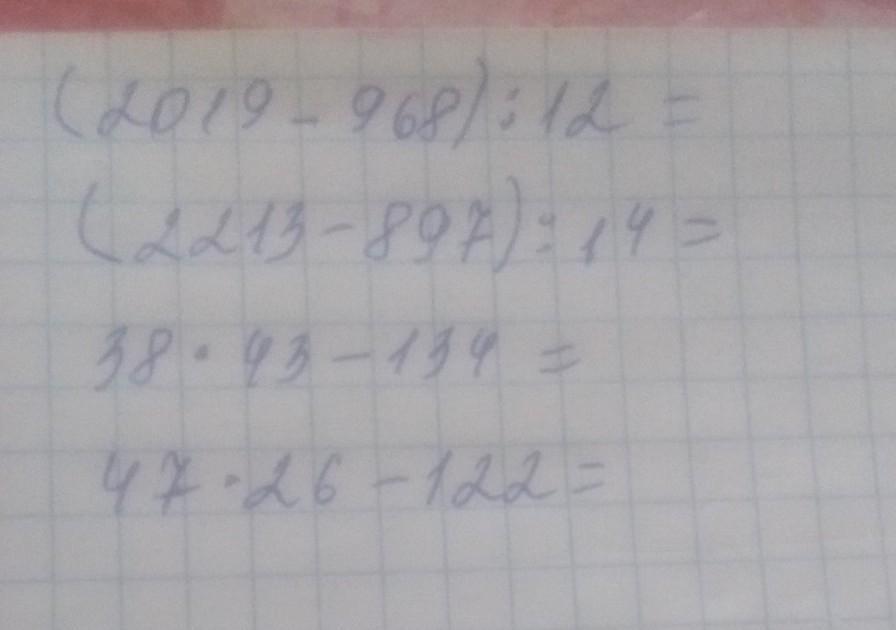 (2019 - 968) : 12 =
(2213 - 897) : 14 =
38 · 43 - 134 =
47 · 26 - 122 =